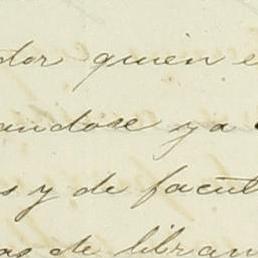 dor quien e
andose ya
s y de facult
as de libran